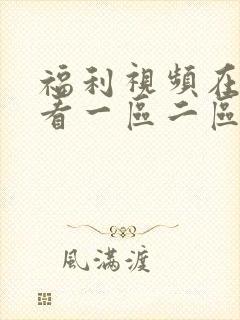 福利視頻在
看一區二區
風滿渡